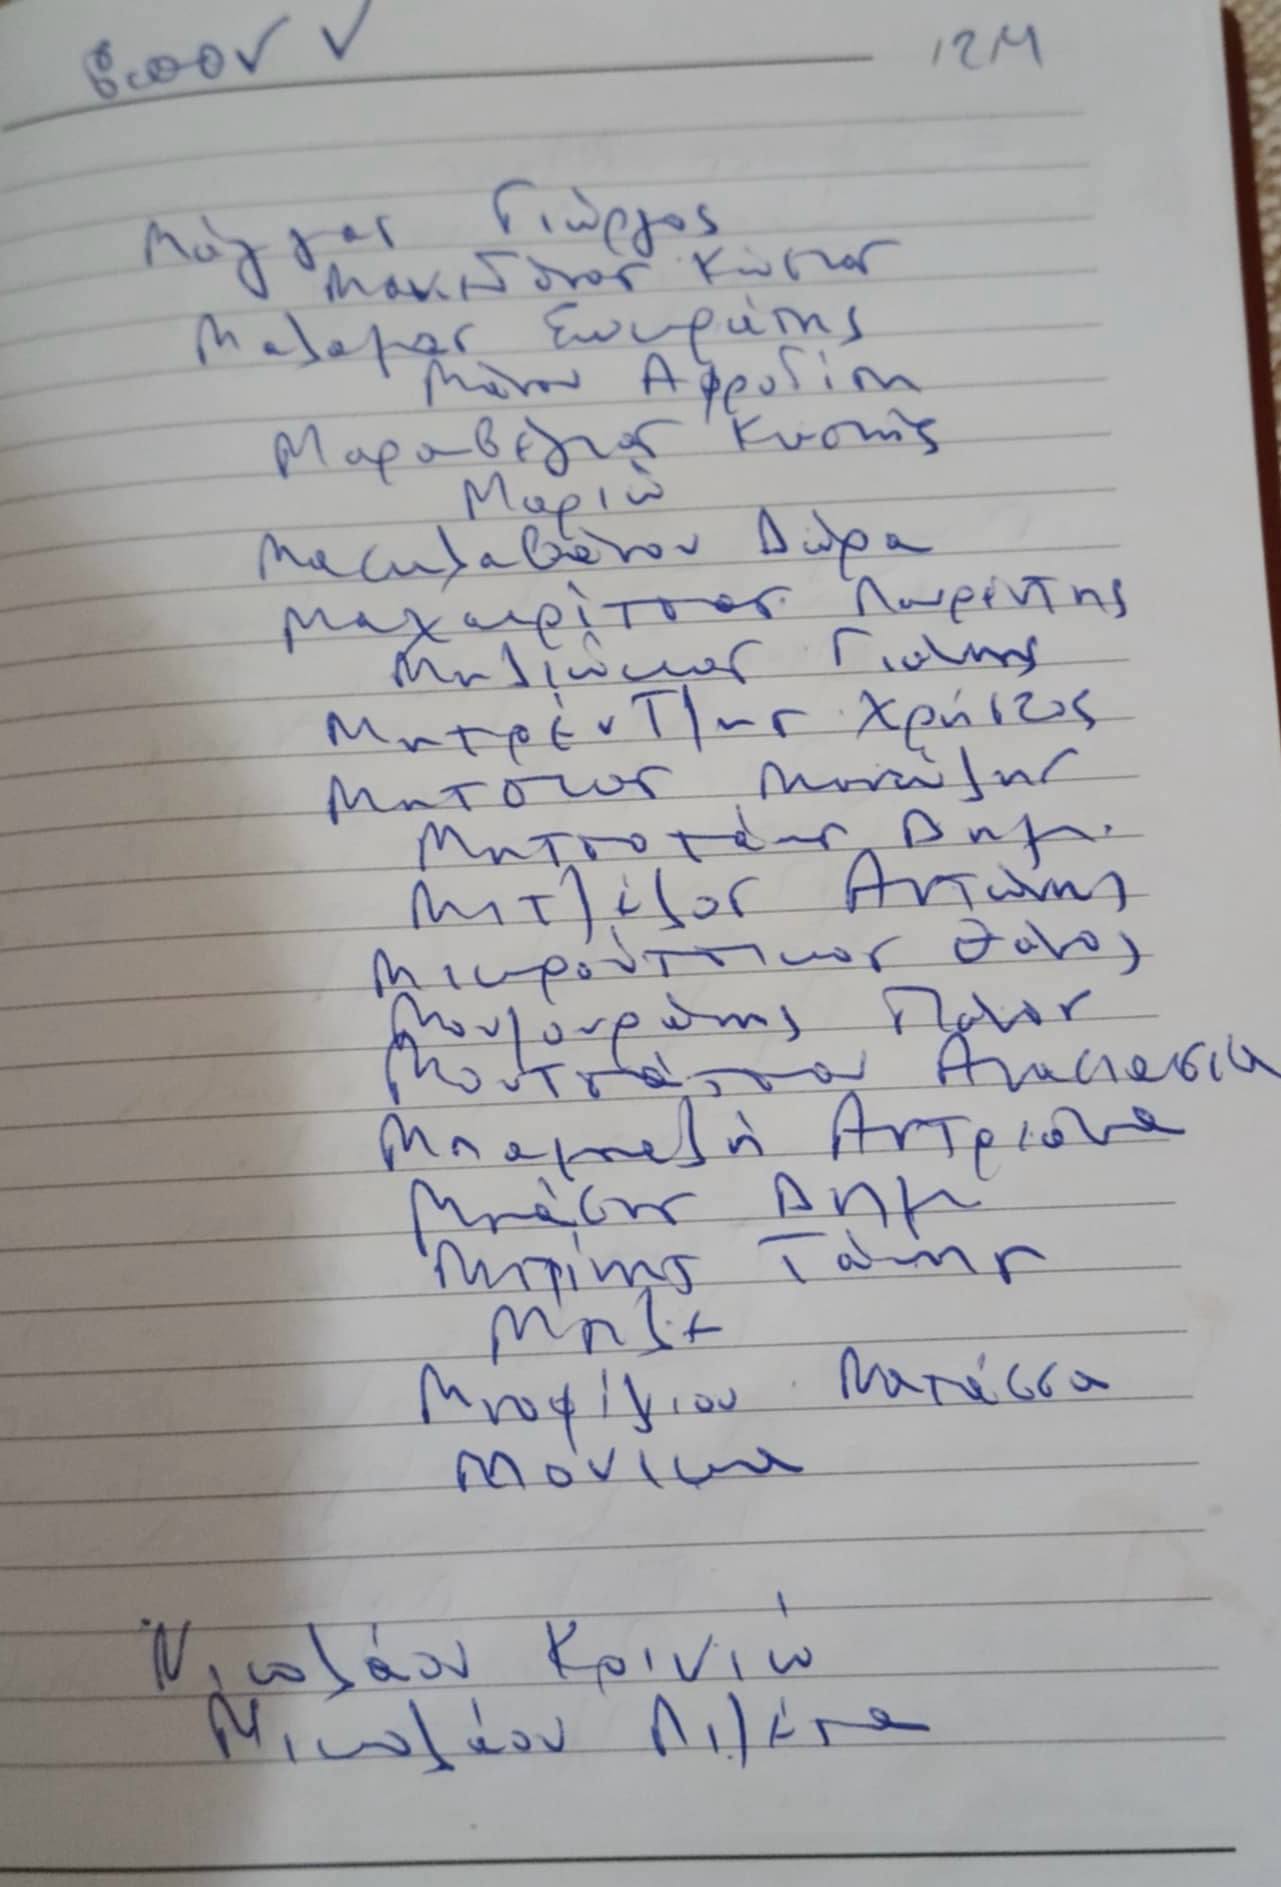 12Μ
Μάγγας Γιώργος
Μακεδόνας Κώστας
Μάλαμας Σωκράτης
Μάνου Αφροδίτη
Μαραβέγιας Κωστής
Μαριώ
Μασκλαβάνου Δώρα
Μαχαιρίτσας Λαυρέντης
Μηλιώκας Γιάννης
Μητρέντζης Χρήστος
Μητσιας Μανώλης
Μητσοτάκης Δημ.
Μιτζέλος Αντώνης
Μικρούτσικος Θάνος
Μουζουράκης Πάνος
Μουτσάτσου Αναστασία
Μπαμπαλή Αντριάνα
Μπάσης Δημ
Μπιρίκης Τάκης
Μπλε
Μποφίλιου Νατάσσα
Μόνικα
Νικολάου Κρινιώ
Νικολάου Λιζέτα